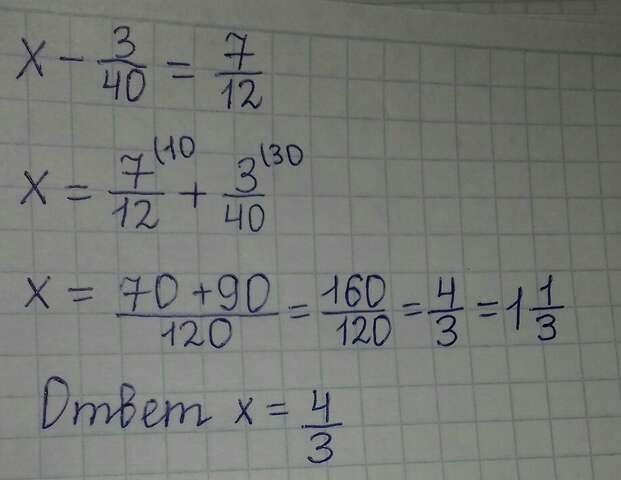 x - 3/40 = 7/12
x = 7/12 (10 + 3/40 (30
x = 70+90/120 = 160/120 = 4/3 = 1 1/3
Ответ x = 4/3